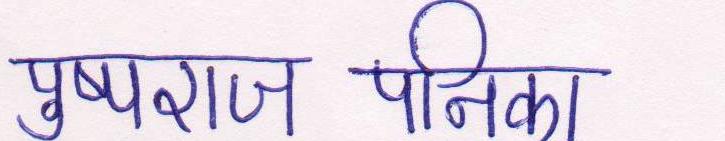 पुष्पराज पनिका